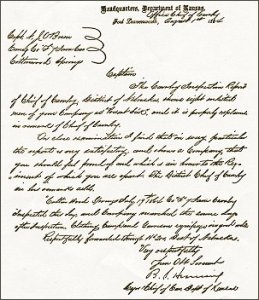 Headquarters, Department of Kansas,
Office Chief of Cavalry
Fort Leavenworth, August 1864
Capt. O'Brien
Comdg Co F 7 Iowa Cav
Cottonwood Springs
Captain
The Cavalry Inspection Report
of Chief of Cavalry, District of Nebraska shows eight enlisted
men of your Company as it is properly explained
in remark of Chief of Cavalry.
On close examination I find that in every particular
the report is very satisfactory, and shows a Company, that
you should feel proud of and which is an honor to the Reg-
iment of which you are apart. The District Chief of Cavalry
in his remarks adds.
"Cottonwood Springs July Co F 7 Iowa Cavalry
Inspected this day, and Company marched the same day
after Inspection. Clothing, Camp and Garrison equipage in good order
Respectfully forwarded through Hd Qrs Dist of Nebraska.
Very respectfully
Your Obt Servant
B. S. Henning
Chief of Cav Dept of Kansas